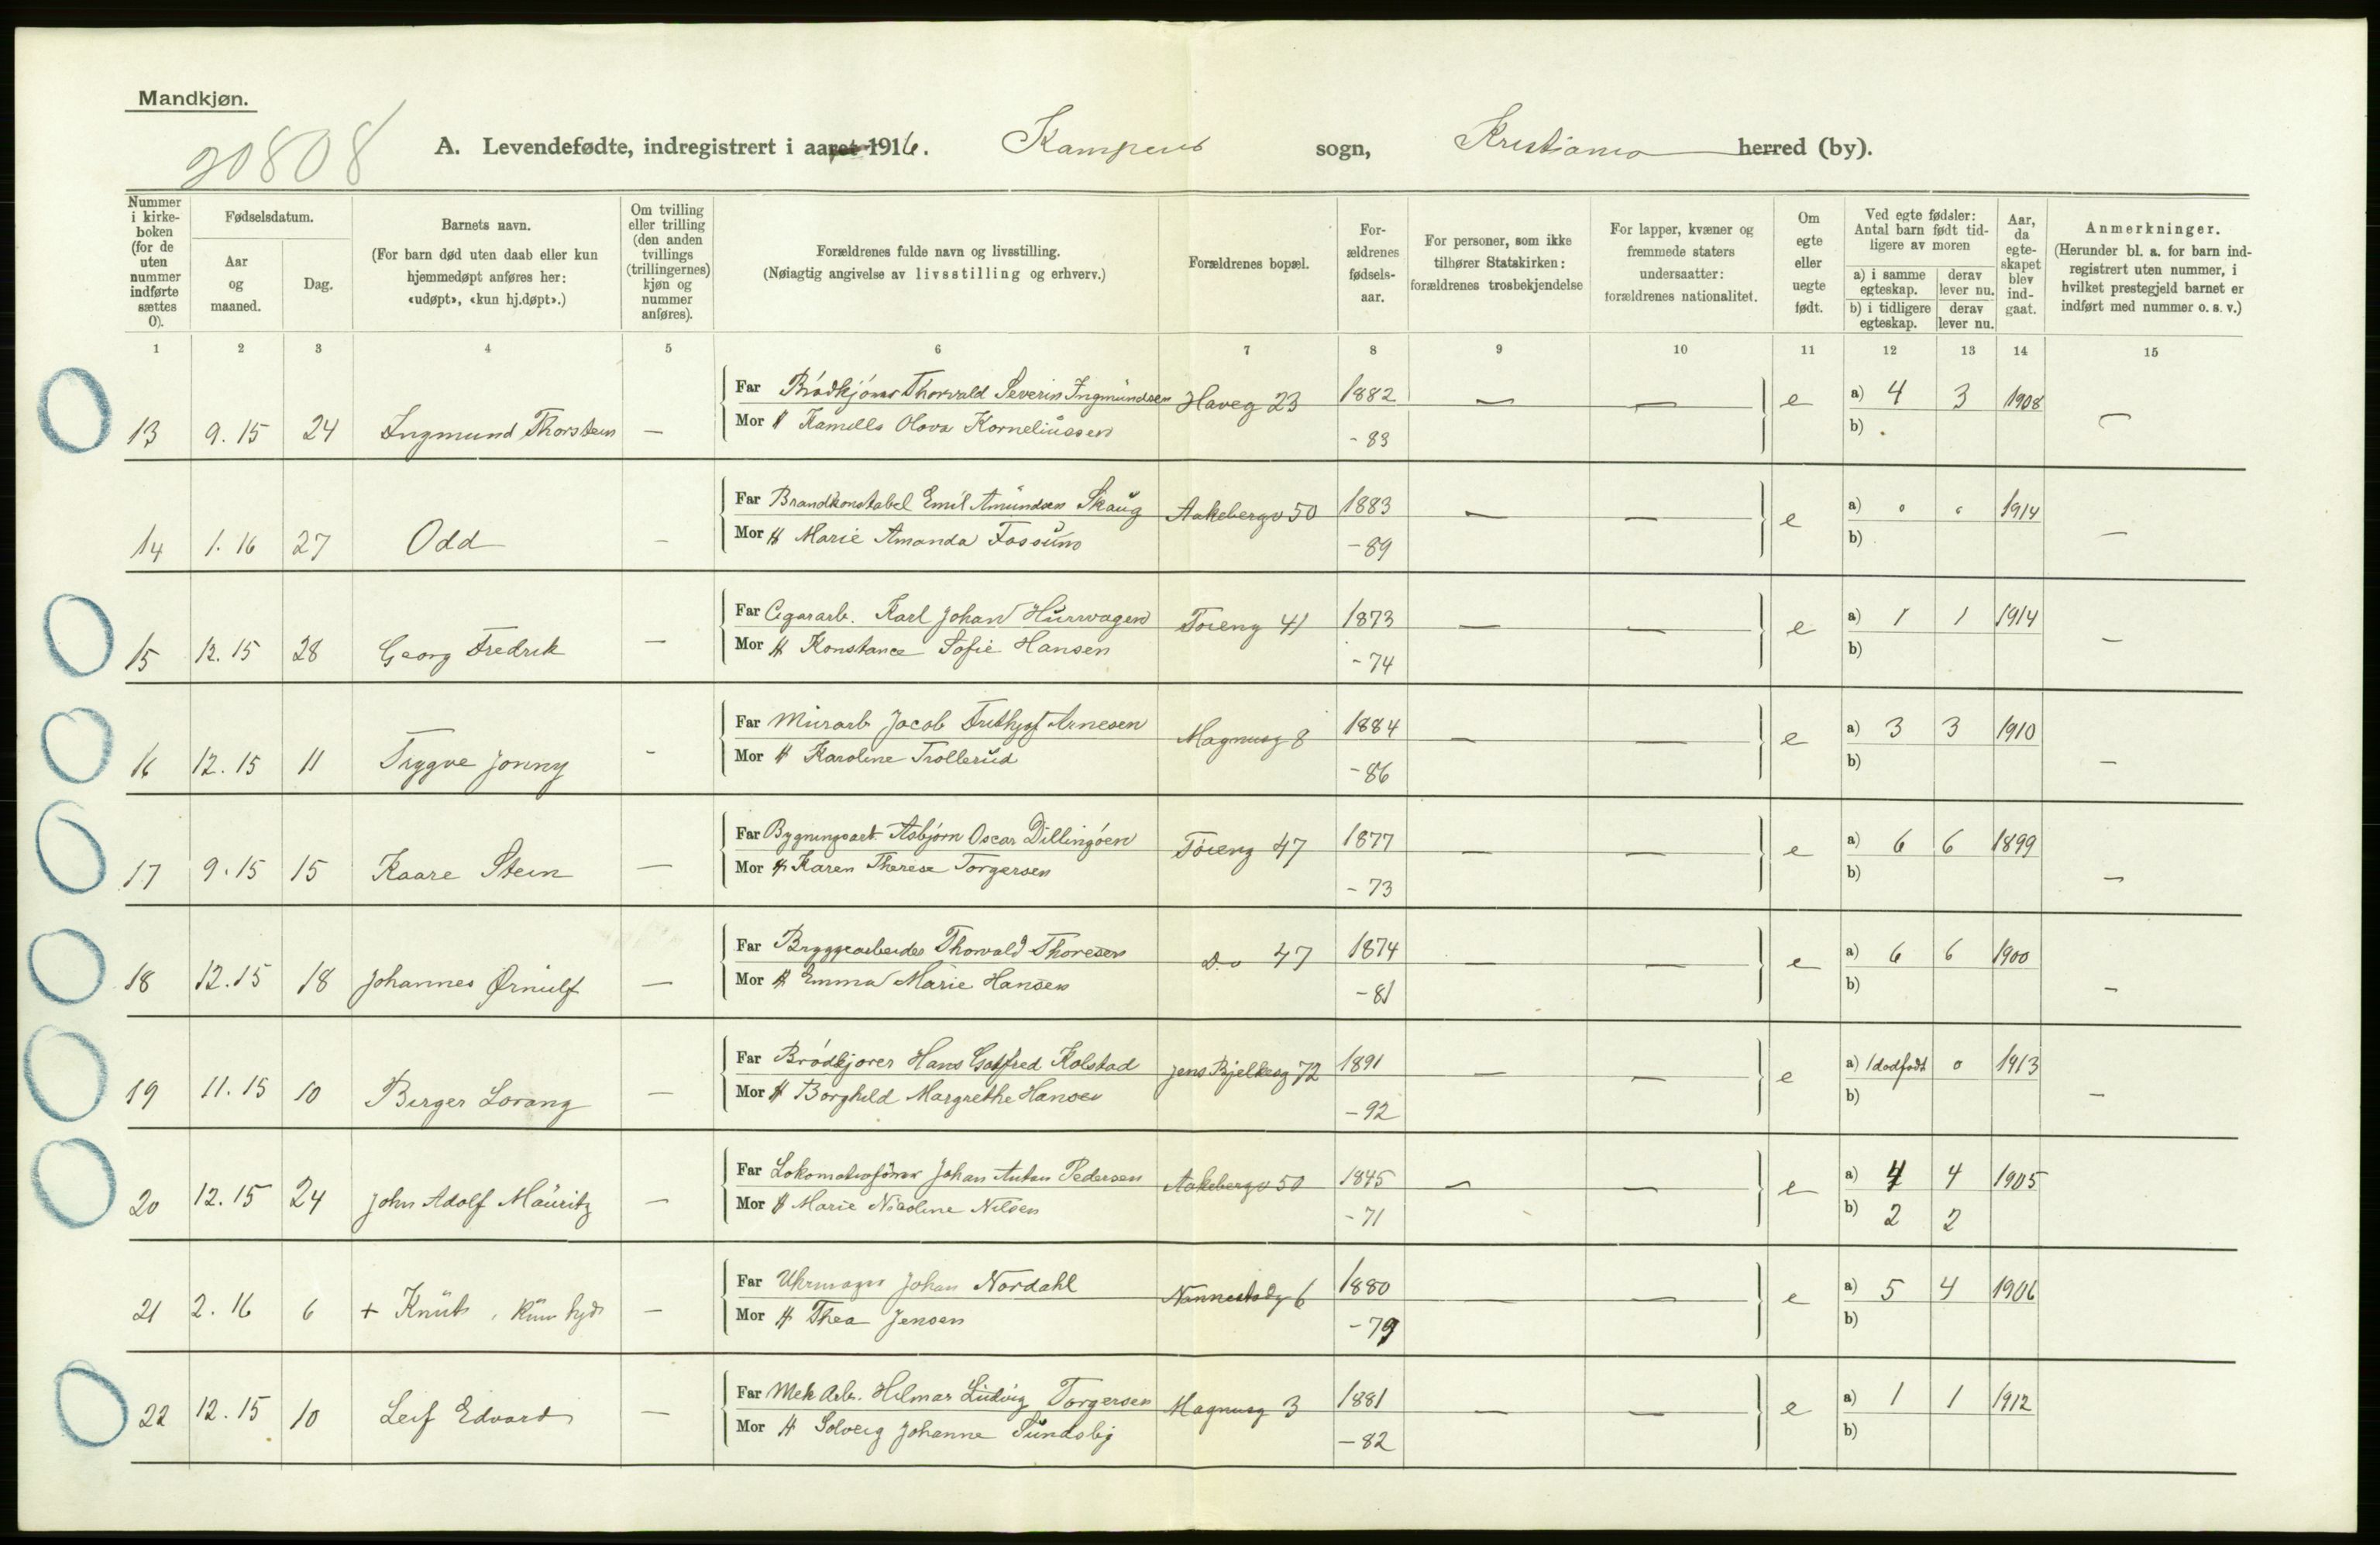 Mandkjøn.
20808
A. Levendefødte, indregistrert i aaret 1916. Kampens sogn, Kristiania herred (by).
Nummer i kirkeboken (for de uten nummer indførte sættes 0).
Fødselsdatum.
Aar og maaned.
Dag.
Barnets navn.
(For barn død uten daab eller kun hjemmedøpt anføres her: «udøpt», «kun hj.døpt».)
Om tvilling eller trilling (den anden tvillings (trillingernes) kjøn og nummer anføres).
Forældrenes fulde navn og livsstilling.
(Nøiagtig angivelse av livsstilling og erhverv.)
Forældrenes bopæl.
Forældrenes fødselsaar.
For personer, som ikke tilhører Statskirken: forældrenes trosbekjendelse
For lapper, kvæner og fremmede staters undersaatter: forældrenes nationalitet.
Om egte eller uegte født.
Ved egte fødsler: Antal barn født tidligere av moren
a) i samme egteskap. derav lever nu.
b) i tidligere egteskap. derav lever nu.
Aar, da egteskapet blev indgaat.
Anmerkninger.
(Herunder bl. a. for barn indregistrert uten nummer, i hvilket prestegjeld barnet er indført med nummer o. s. v.)
1 2 3 4 5 6 7 8 9 10 11 12 13 14 15
Far Brødkjører Thorvald Severin Ingmundsen Haveg 23 1882 — — e a) 4 3 1908
13 9.15 24 Ingmund Thorstein — Mor H Kamilla Olova Korneliussen - 83 b) —
Far Brandkonstabel Emil Amundsen Skaug Aakebergv 50 1883 — — e a) 0 0 1914
14 1.16 27 Odd — Mor H Marie Amanda Fossum - 89 b) —
Far Cigararb. Karl Johan Hurrvagen Tøieng 41 1873 — — e a) 1 1 1914
15 12.15 28 Georg Fredrik — Mor H Konstance Sofie Hansen - 74 b) —
Far Murarb Jacob Frithjof Arnesen Magnusg 8 1884 — — e a) 3 3 1910
16 12.15 11 Trygve Jonny - Mor H Karoline Trollerud - 86 b) —
Far Bygningsarb. Asbjørn Oscar Dillingøen Tøieng 47 1877 — — e a) 6 6 1899
17 9.15 15 Kaare Stein — Mor H Karen Therese Torgersen - 73 b) —
Far Bryggearbeider Thorvald Thoresen Do 47 1874 — — e a) 6 6 1900
18 12.15 18 Johannes Ørnulf — Mor H Emma Marie Hansen - 81 b) —
Far Brødkjører Hans Gotfred Kolstad Jens Bjelkesg 72 1891 — — e a) 1 dødfødt 0 1913
19 11.15 10 Birger Lorang — Mor H Borghild Margrethe Hansen - 92 b) —
Far Lokomotivfører Johan Anton Pedersen Aakebergv 50 1845 — — e a) 4 4 1905
20 12.15 24 John Adolf Mauritz — Mor H Marie Nicoline Nilsen - 71 b) 2 2
Far Uhrmager Johan Nordahl Nannestadg 6 1880 — — e a) 5 4 1906
21 2.16 6 + Knut, Kun hjd — Mor H Thea Jensen - 79 b)
Far Mek Arb. Hilmar Ludvig Torgersen Magnusg 3 1881 — — e a) 1 1 1912
22 12.15 10 Leif Edvard — Mor H Solveig Johanne Sundsbj - 82 b)